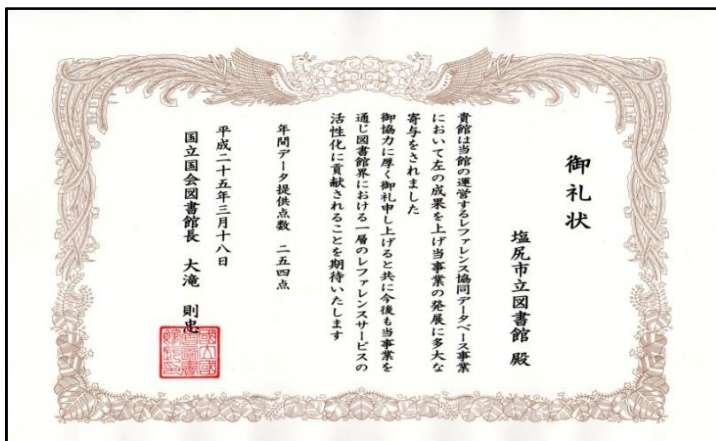 御礼状
塩尻市立図書館 殿
貴館は当館の運営するレファレンス協同データベース事業
において左の成果を上げ当事業の発展に多大な
寄与をされました
御協力に厚く御礼申し上げると共に今後も当事業を
通じ図書館界における一層のレファレンスサービスの
活性化に貢献されることを期待いたします
年間データ提供点数 二五四点
平成二十五年三月十八日
国立国会図書館長 大滝 則忠